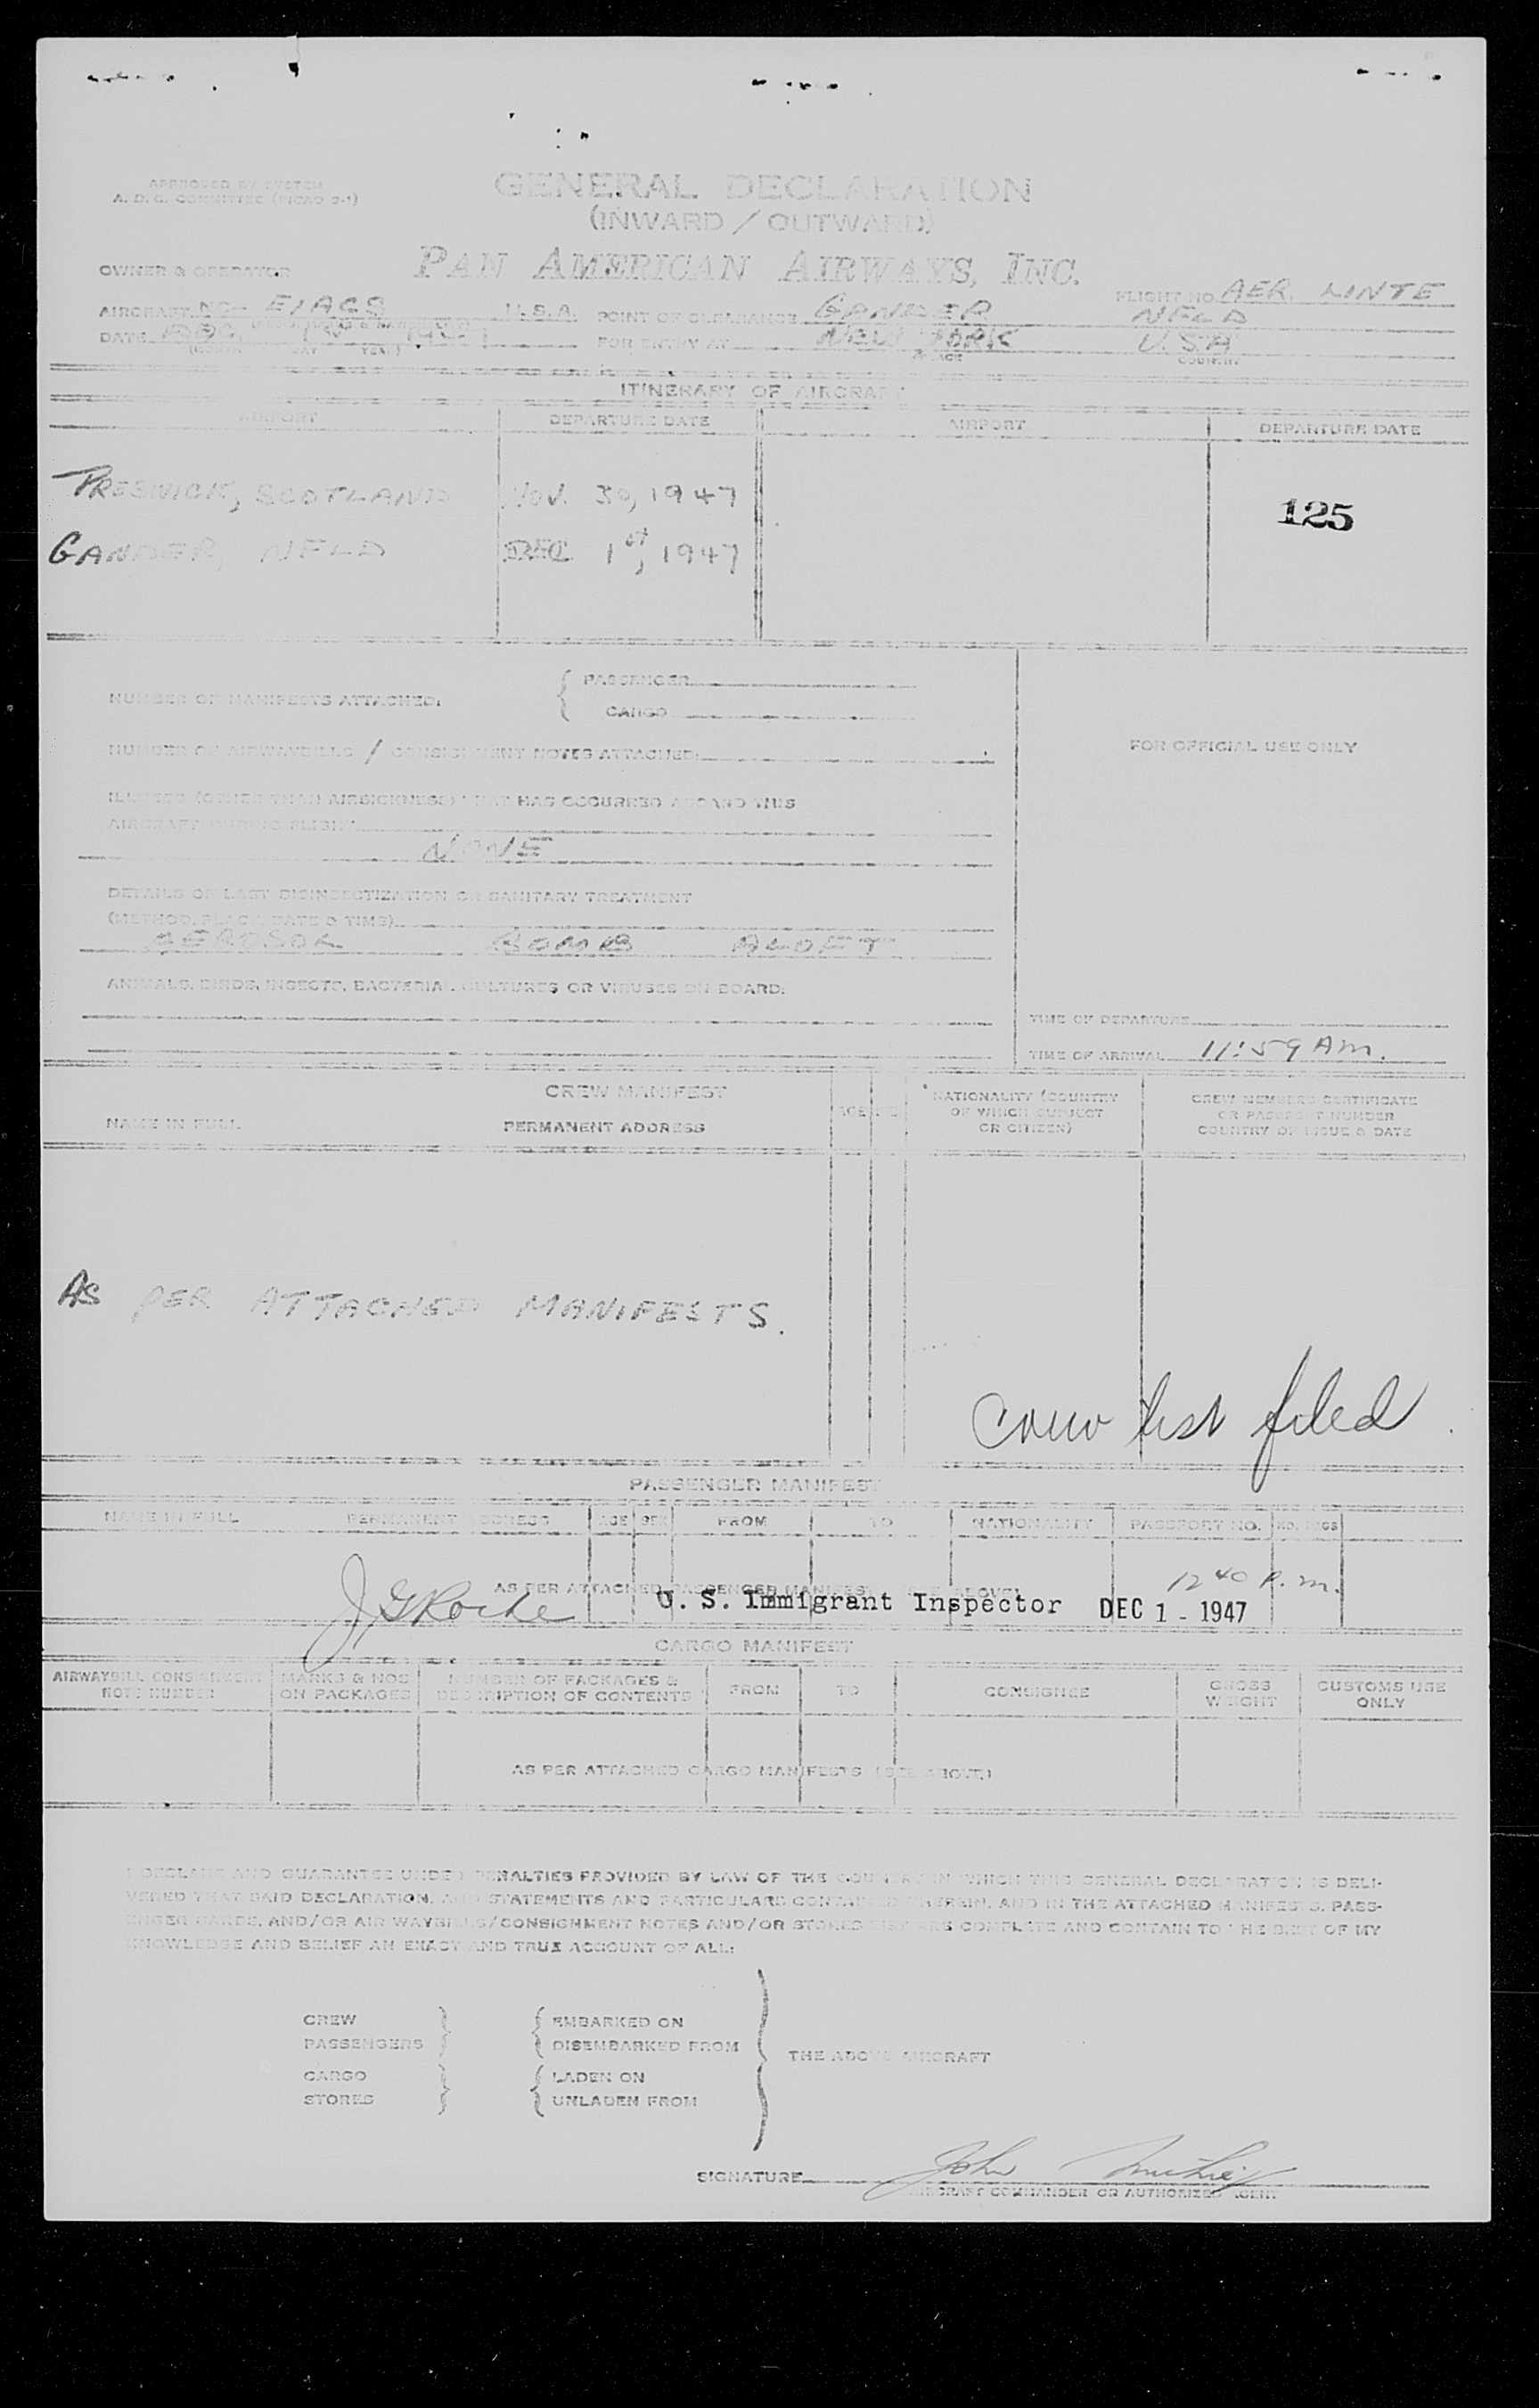 APPROVED BY SYSTEM
A. D. C. COMMITTEE (PICAO 2-1)
GENERAL DECLARATION
(INWARD / OUTWARD)
PAN AMERICAN AIRWAYS, INC.
OWNER & OPERATOR
FLIGHT NO. AER. LINTE
AIRCRAFT NC- EIACS U.S.A. POINT OF CLEARANCE GANDER NFLD
DATE DEC 1st 1947 FOR ENTRY AT NEW YORK U.S.A
YEAR) COUNTRY
ITINERARY OF AIRCRAFT
AIRPORT DEPARTURE DATE AIRPORT DEPARTURE DATE
PRESWICK, SCOTLAND NOV. 30, 1947
125
GANDER, NFLD DEC 1st, 1947
NUMBER OF MANIFESTS ATTACHED: { PASSENGER
CARGO
NUMBER OF AIRWAYBILLS / CONSIGNMENT NOTES ATTACHED:
FOR OFFICIAL USE ONLY
ILLNESS (OTHER THAN AIRSICKNESS) THAT HAS OCCURRED ABOARD THIS
AIRCRAFT DURING FLIGHT
NONE
DETAILS OF LAST DISINSECTIZATION OR SANITARY TREATMENT
(METHOD, PLACE, DATE & TIME)
AEROSOL BOMB ALOFT
ANIMALS, BIRDS, INSECTS, BACTERIAL CULTURES OR VIRUSES ON BOARD:
TIME OF DEPARTURE
TIME OF ARRIVAL 11:59 AM.
CREW MANIFEST
NAME IN FULL PERMANENT ADDRESS AGE NATIONALITY (COUNTRY OF WHICH SUBJECT OR CITIZEN) CREW MEMBERS CERTIFICATE OR PASSPORT NUMBER COUNTRY OF ISSUE & DATE
AS PER ATTACHED MANIFESTS.
Crew list filed
PASSENGER MANIFEST
NAME IN FULL PERMANENT ADDRESS AGE SEX FROM TO NATIONALITY PASSPORT NO. NO. PCGS
AS PER ATTACHED PASSENGER MANIFEST (SEE ABOVE)
12 40 P.m.
J G Roche U. S. Immigrant Inspector DEC 1 - 1947
CARGO MANIFEST
AIRWAYBILL CONSIGNMENT NOTE NUMBER MARKS & NOS ON PACKAGES NUMBER OF PACKAGES & DESCRIPTION OF CONTENTS FROM TO CONSIGNEE GROSS WEIGHT CUSTOMS USE ONLY
AS PER ATTACHED CARGO MANIFESTS (SEE ABOVE)
I DECLARE AND GUARANTEE UNDER PENALTIES PROVIDED BY LAW OF THE COUNTRY IN WHICH THIS GENERAL DECLARATION IS DELI-
VERED THAT SAID DECLARATION, AND STATEMENTS AND PARTICULARS CONTAINED HEREIN, AND IN THE ATTACHED MANIFESTS, PASS-
ENGER CARDS, AND/OR AIR WAYBILLS/CONSIGNMENT NOTES AND/OR STORES LIST ARE COMPLETE AND CONTAIN TO THE BEST OF MY
KNOWLEDGE AND BELIEF AN EXACT AND TRUE ACCOUNT OF ALL:
CREW } { EMBARKED ON
PASSENGERS DISEMBARKED FROM
THE ABOVE AIRCRAFT
CARGO } { LADEN ON
STORES UNLADEN FROM
SIGNATURE John
AIRCRAFT COMMANDER OR AUTHORIZED AGENT